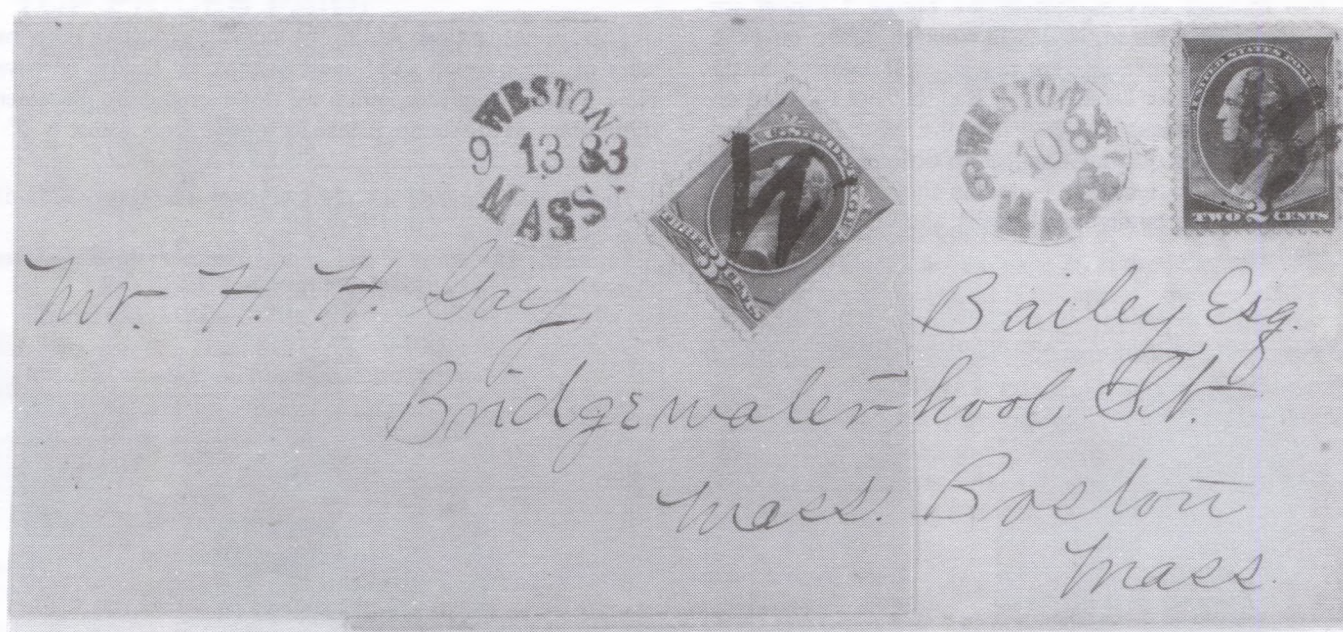 WESTON
9 13 83
MASS
U.S. POSTAGE
W
THREE 3 CENTS
Mr. H. H. Gay
Bridgewater
Mass.
WESTON
10 84
MASS
UNITED STATES POSTAGE
TWO 2 CENTS
Bailey Esq.
hool St.
Boston
Mass.